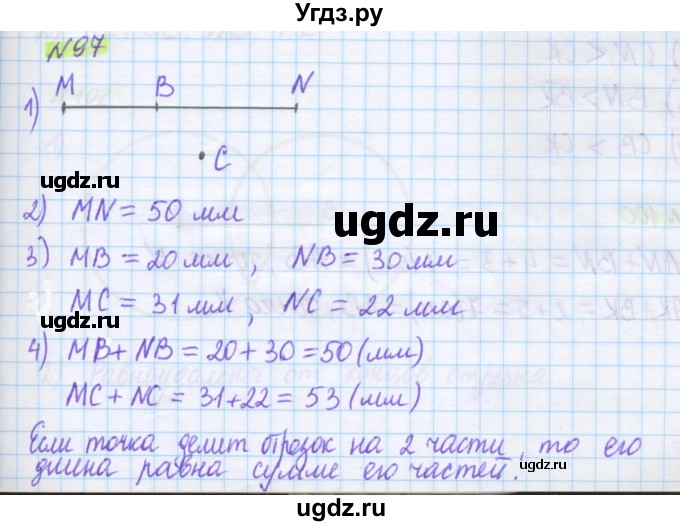 Угдз.ру
№97
M B N
1)
C
ugdz.ru
ugdz.ru
2) MN = 50 мм
ugdz.ru
3) MB = 20 мм, NB = 30 мм
MC = 31 мм, NC = 22 мм
ugdz.ru
4) MB + NB = 20 + 30 = 50 (мм)
ugdz.ru
MC + NC = 31 + 22 = 53 (мм)
Если точка делит отрезок на 2 части, то его
длина равна сумме его частей.
ugdz.ru
ugdz.ru